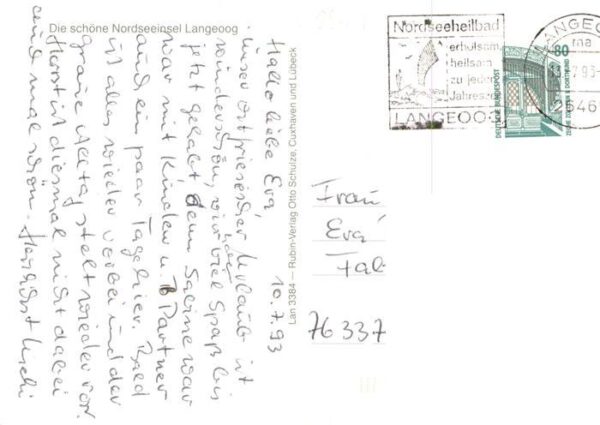 Die schöne Nordseeinsel Langeoog
10.7.93
Hallo liebe Eva,
unser ostfriesischer Urlaub ist
wunderschön, wir haben viel Spaß bis
jetzt gehabt, denn Sabine war
war mit Kindern u. Partner
auch ein paar Tage hier. Bald
ist alles wieder vorbei und der
graue Alltag steht wieder vor.
Horst ist diesmal nicht dabei
auch mal schön. Herzlichst
Lan 3384 — Rubin-Verlag Otto Schulze, Cuxhaven und Lübeck
Nordseeheilbad
erholsam
heilsam
zu jeder
Jahreszeit
LANGEOOG
LANGEOOG
ma
7.93
2646
80
DEUTSCHE BUNDESPOST
ZECHE ZOLLERN II DORTMUND
Frau
Eva
Tab
76337